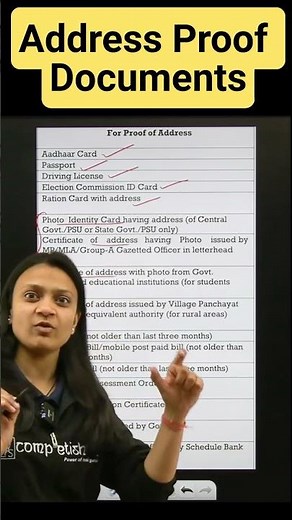 Address Proof
Documents
For Proof of Address
Aadhaar Card
Passport
Driving License
Election Commission ID Card
Ration Card with address
Photo Identity Card having address (of Central
Govt./PSU or State Govt./PSU only)
Certificate of address having Photo issued by
MP/MLA/Group-A Gazetted Officer in letterhead
of address with photo from Govt.
educational institutions (for students
of address issued by Village Panchayat
equivalent authority (for rural areas)
(not older than last three months)
Bill/mobile post paid bill (not older than
months)
(not older than last three months)
Certificate
by
Schedule Bank
competishun